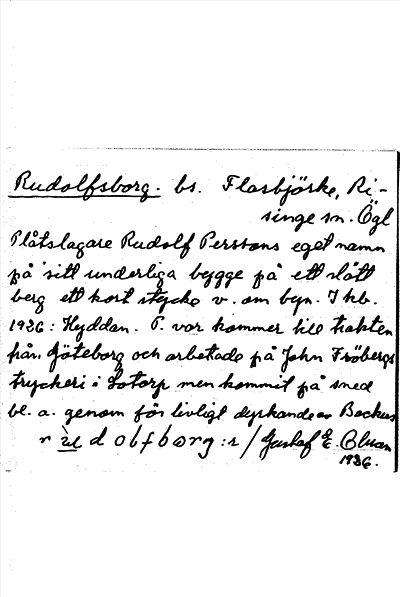 Rudolfsborg. bs. Flasbjörke, Ri-
singe sn. Ögl
Plåtslagare Rudolf Perssons eget namn
på sitt underliga bygge på ett slätt
berg ett kort stycke v. om byn. I kb.
1936: Hyddan. P. var kommen till trakten
från Göteborg och arbetade på John Fröbergs
tryckeri i Sotorp men kommit på sned
bl. a. genom för livligt dyrkande av Backus
r ù d o b f b o r g : s / Gustaf E. Olsson
1936.